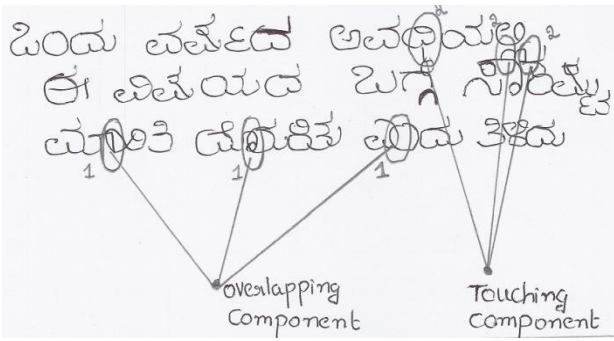 ಒಂದು ವರ್ಷದ ಅವಧಿಯಲ್ಲಿ
ಈ ವಿಷಯದ ಬಗ್ಗೆ
ಮಾಹಿತಿ ದೊರಕಿತು ಎಂದು ತಿಳಿದು
2 2 2
1 1 1
overlapping Component
Touching Component